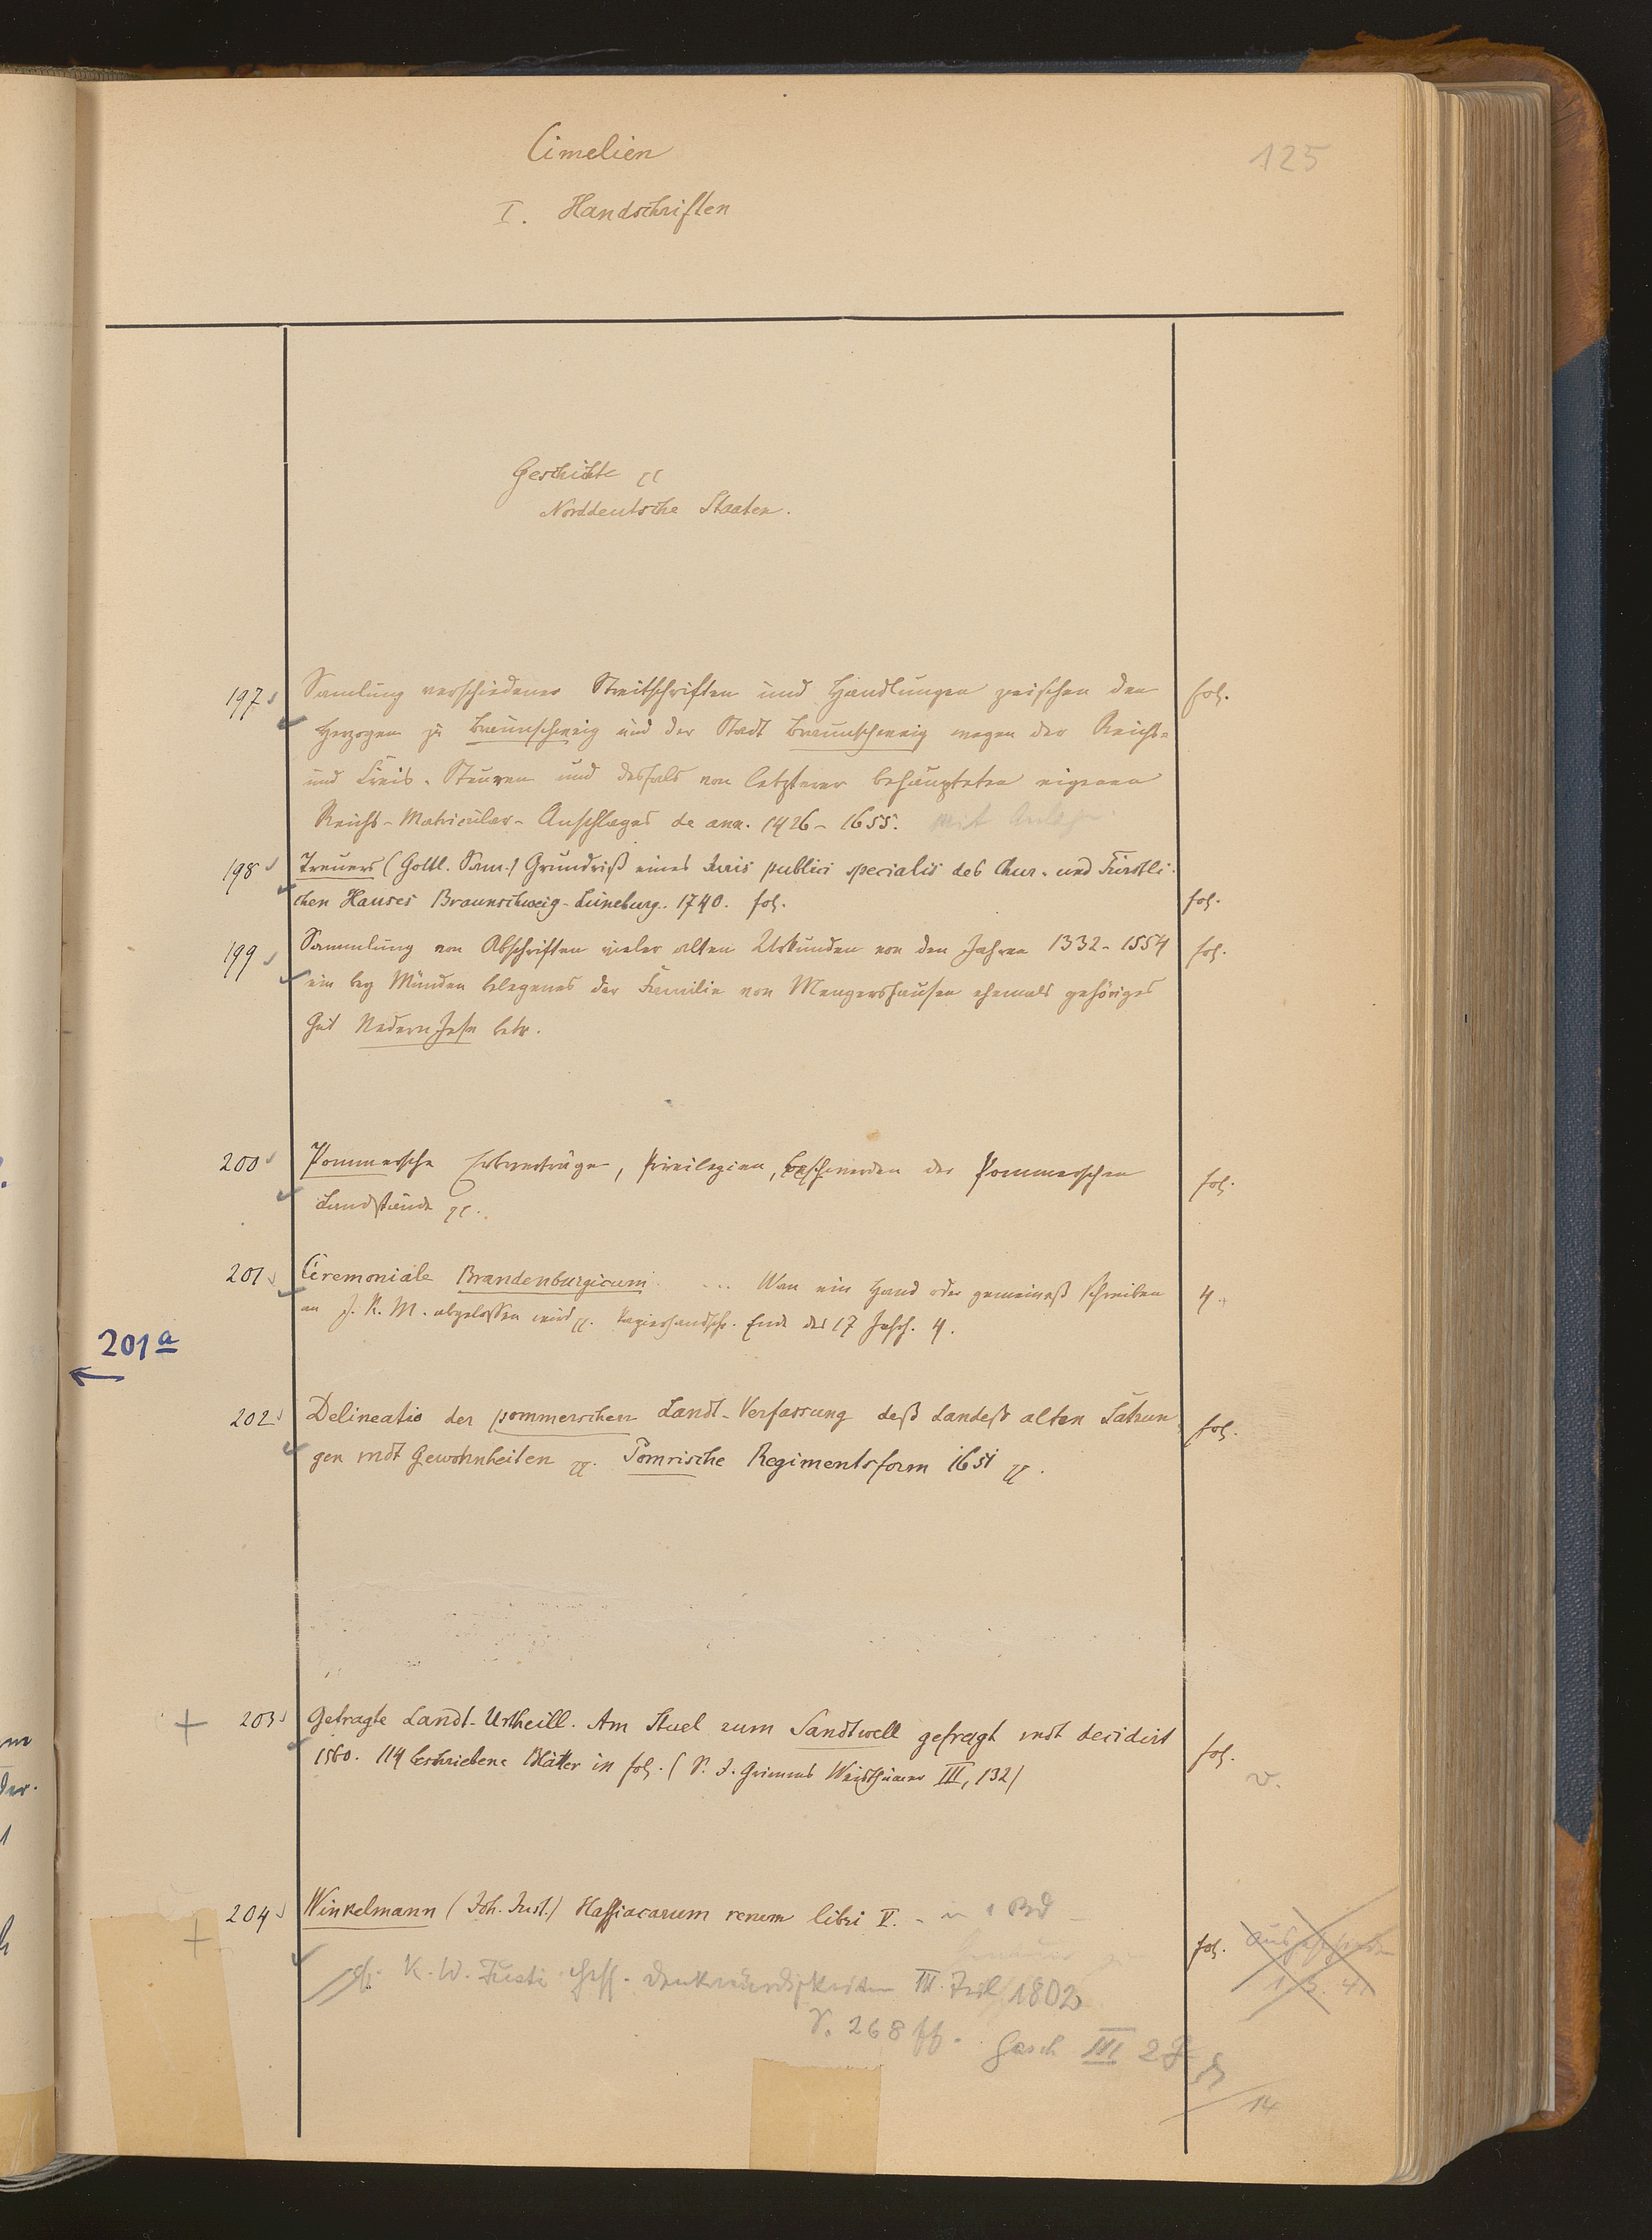 Cimelien
125
I. Handschriften
Geschichte
Norddeutsche Staaten.
197 Samlung verschiedener Streitschriften und Handlungen zwischen den fol.
Herzogen zu Braunschweig und der Stadt Braunschweig wegen der Reichs-
und Kreis-Steuren und desfals von letzterer behaupteten eigenen
Reichs-Matricular-Anschlages de ann. 1426-1655. Mit
198 Treuers (Gottl. Sam.) Grundriß eines Juris publici specialis des Chur- und Fürstli-
chen Hauses Braunschweig-Lüneburg. 1740. fol. fol.
199 Sammlung von Abschriften vieler alten Urkunden von den Jahren 1332-1554 fol.
ein bey Münden belegenes der Familie von Mengershausen ehemals gehöriges
Gut Nedern Jesa betr.
200 Pommersche Erbverträge, Privilegien, Beschwerden der Pommerschen fol.
Landstände
201 Ceremoniale Brandenburgicum .... Wan ein Hand oder gemeineß schreiben 4.
an J. K. M. abgelassen wird Papierhandschr. Ende des 17 Jahrh. 4.
201a
202 Delineatio der pommerschen Landt-Verfassung deß Landeß alten Satzun fol.
gen undt Gewohnheiten Pomrische Regimentsform 1651
+ 203 Gefragte Landt-Urtheill. Am Stuel zum Sandtwell gefragt undt decidirt
1560. 114 beschriebene Blätter in fol. (S. J. Grimms Weisthümer III, 132) fol.
v.
+ 204 Winkelmann (Joh. Just.) Hassiacarum rerum libri V. - in 1 Bd - fol.
1. 3. 41
cf. K. W. Justi Hess. Denkwürdigkeiten III. Teil 1802
S. 268 ff. Gesch III 2
14